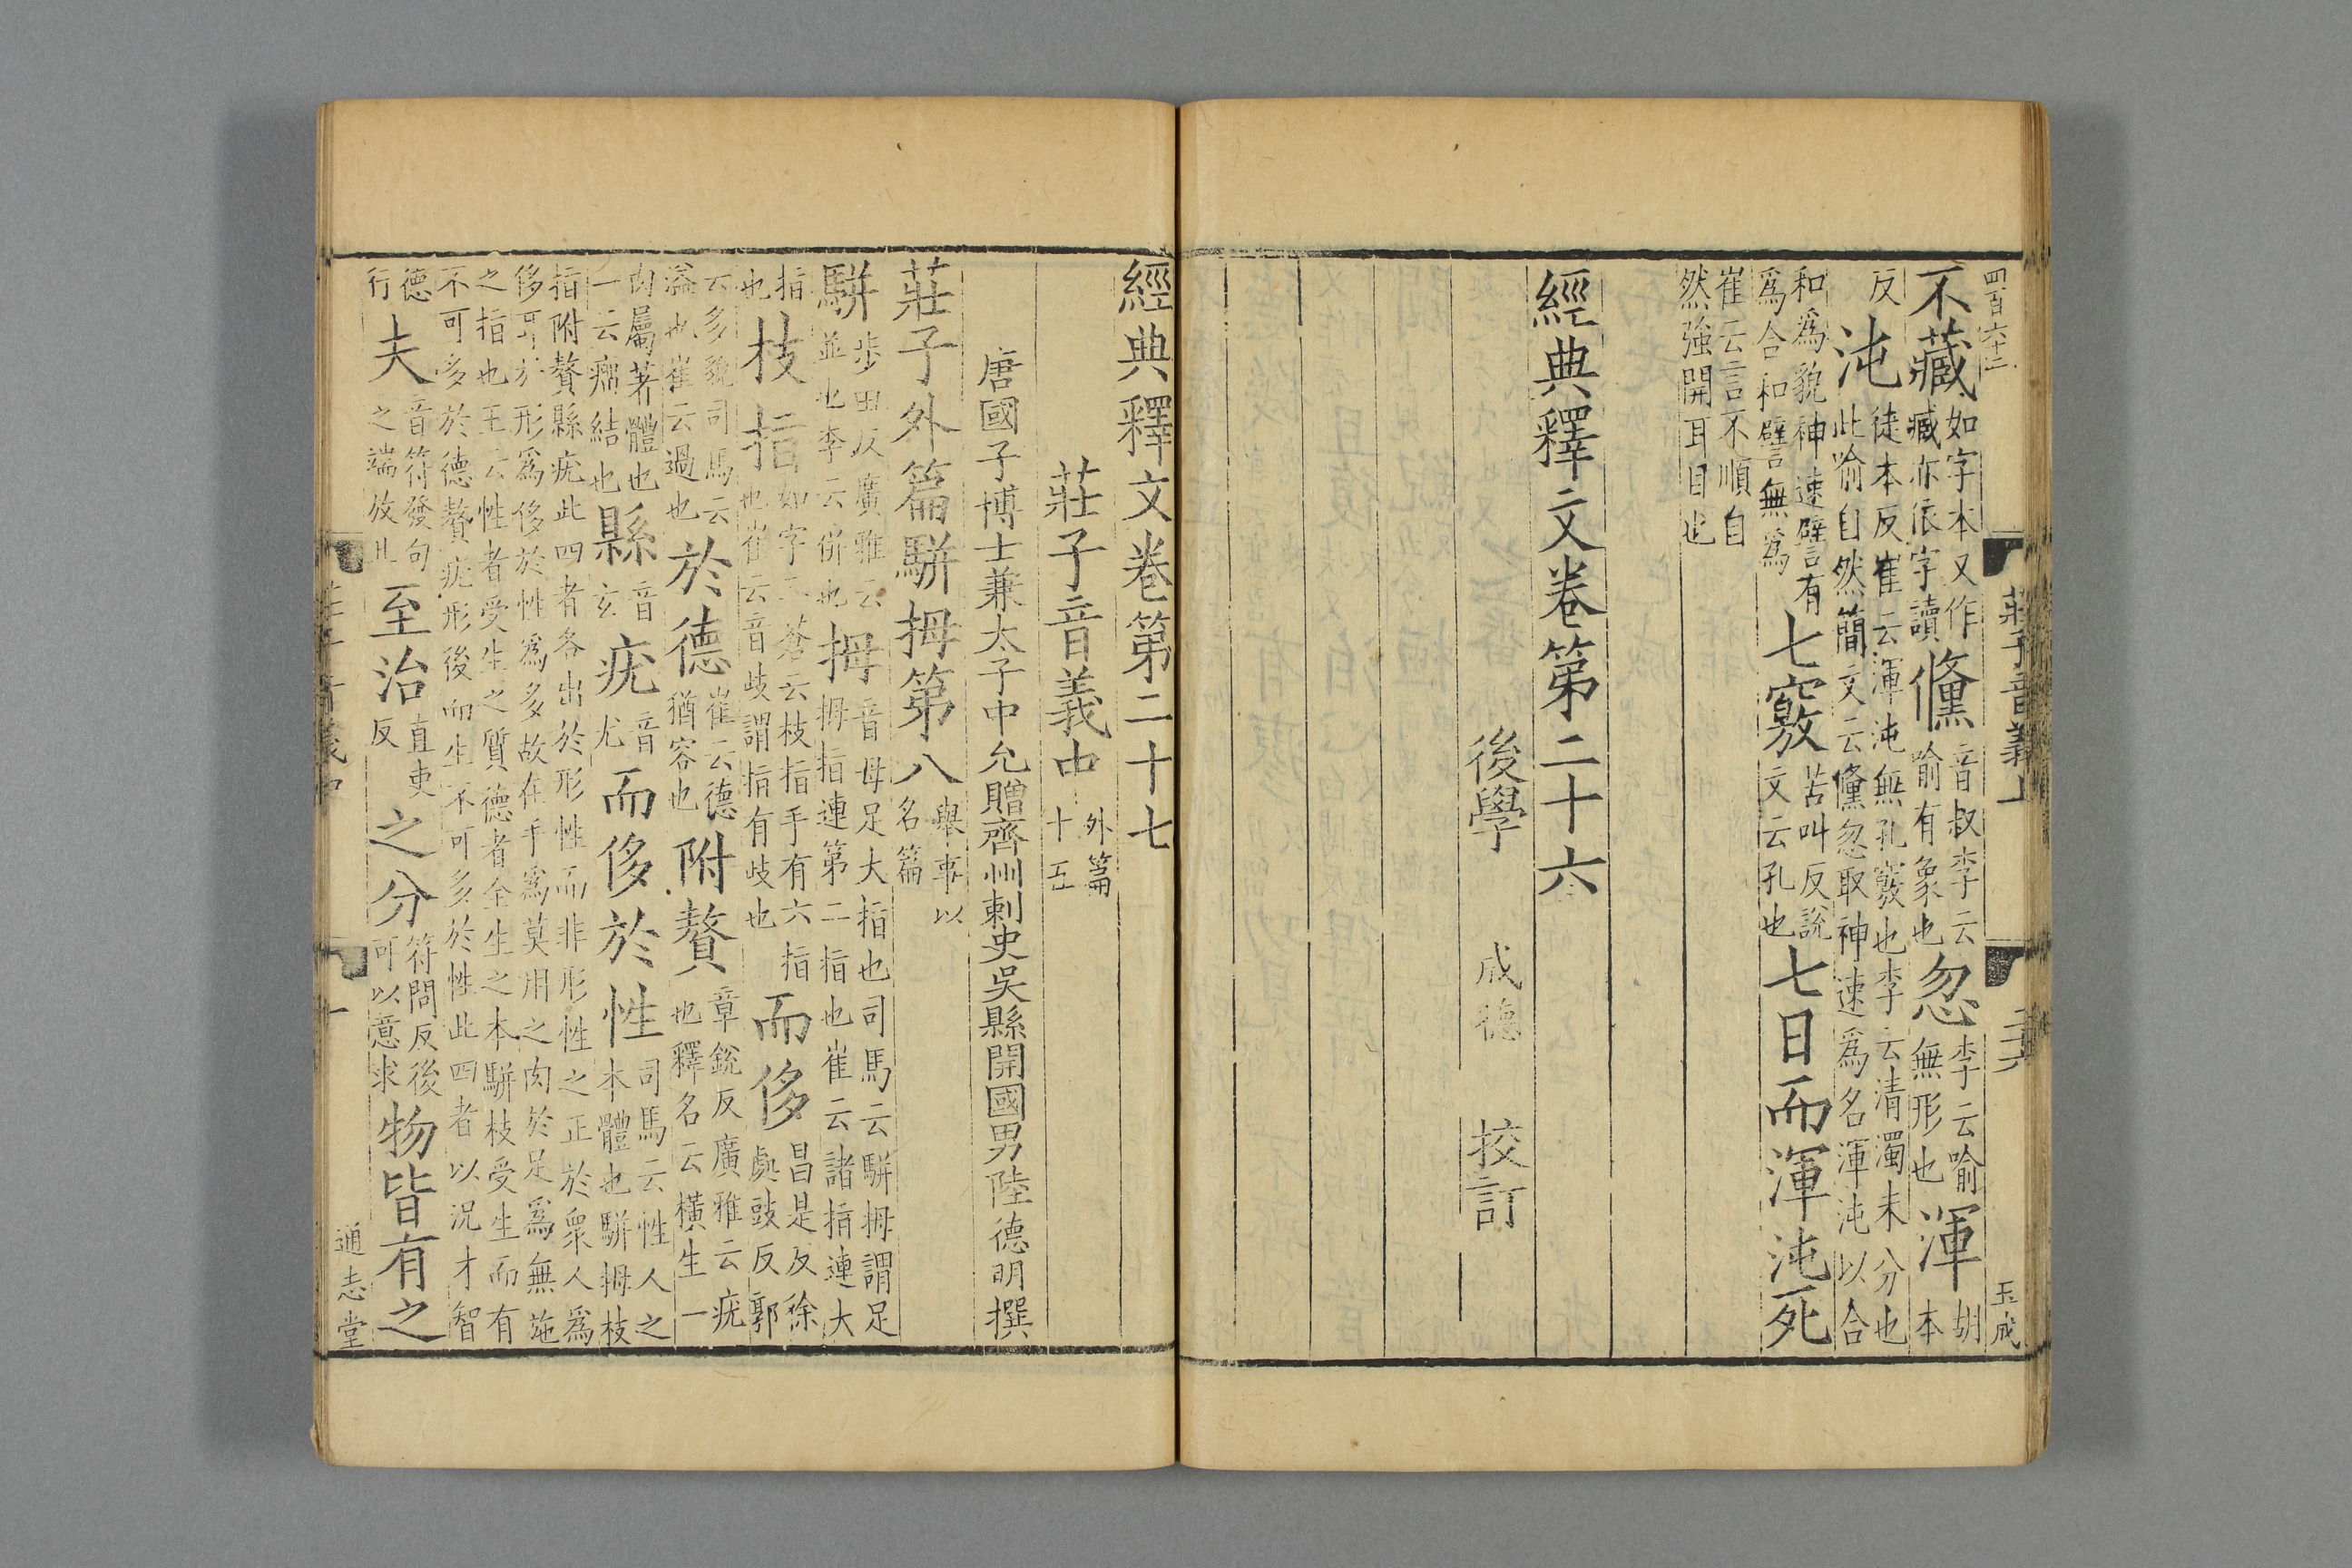 四百六十二
莊子音義上
玉成
不藏如字本又作臧亦依字讀儵音叔李云喻有象也忽李云喻無形也渾胡本
反沌徒本反崔云渾沌無孔竅也李云清濁未分也此喻自然簡文云儵忽取神速爲名渾沌以合
和爲貌神速譬有爲合和譬無爲七竅苦叫反說文云孔也七日而渾沌死
崔云言不順自然強開耳目也
經典釋文卷第二十六
後學 成德 校訂
經典釋文卷第二十七
莊子音義中外篇十五
唐國子博士兼太子中允贈齊州刺史吳縣開國男陸德明撰
莊子外篇駢拇第八舉事以名篇
駢步田反廣雅云並也李云併也拇音母足大指也司馬云駢拇謂足拇指連第二指也崔云諸指連大
指也枝指如字三蒼云枝指手有六指也崔云音歧謂指有歧也而侈昌是反徐處豉反郭
云多貌司馬云溢也崔云過也於德崔云德猶容也附贅章銳反廣雅云疣也釋名云橫生一
肉屬著體也一云瘤結也縣音玄疣音尤而侈於性司馬云性人之本體也駢拇枝
指附贅縣疣此四者各出於形性而非形性之正於衆人爲侈耳於形爲侈於性爲多故在手爲莫用之肉於足爲無施
之指也王云性者受生之質德者全生之本駢枝受生而有不可多於德贅疣形後而生不可多於性此四者以況才智
德行夫音符發句之端放此至治直吏反之分符問反後可以意求物皆有之
莊子音義中
一
通志堂